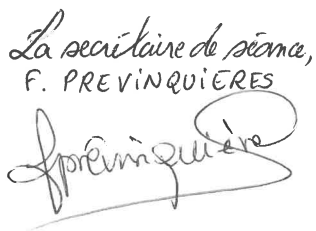 La secrétaire de séance,
F. PREVINQUIERES
fprévinquière